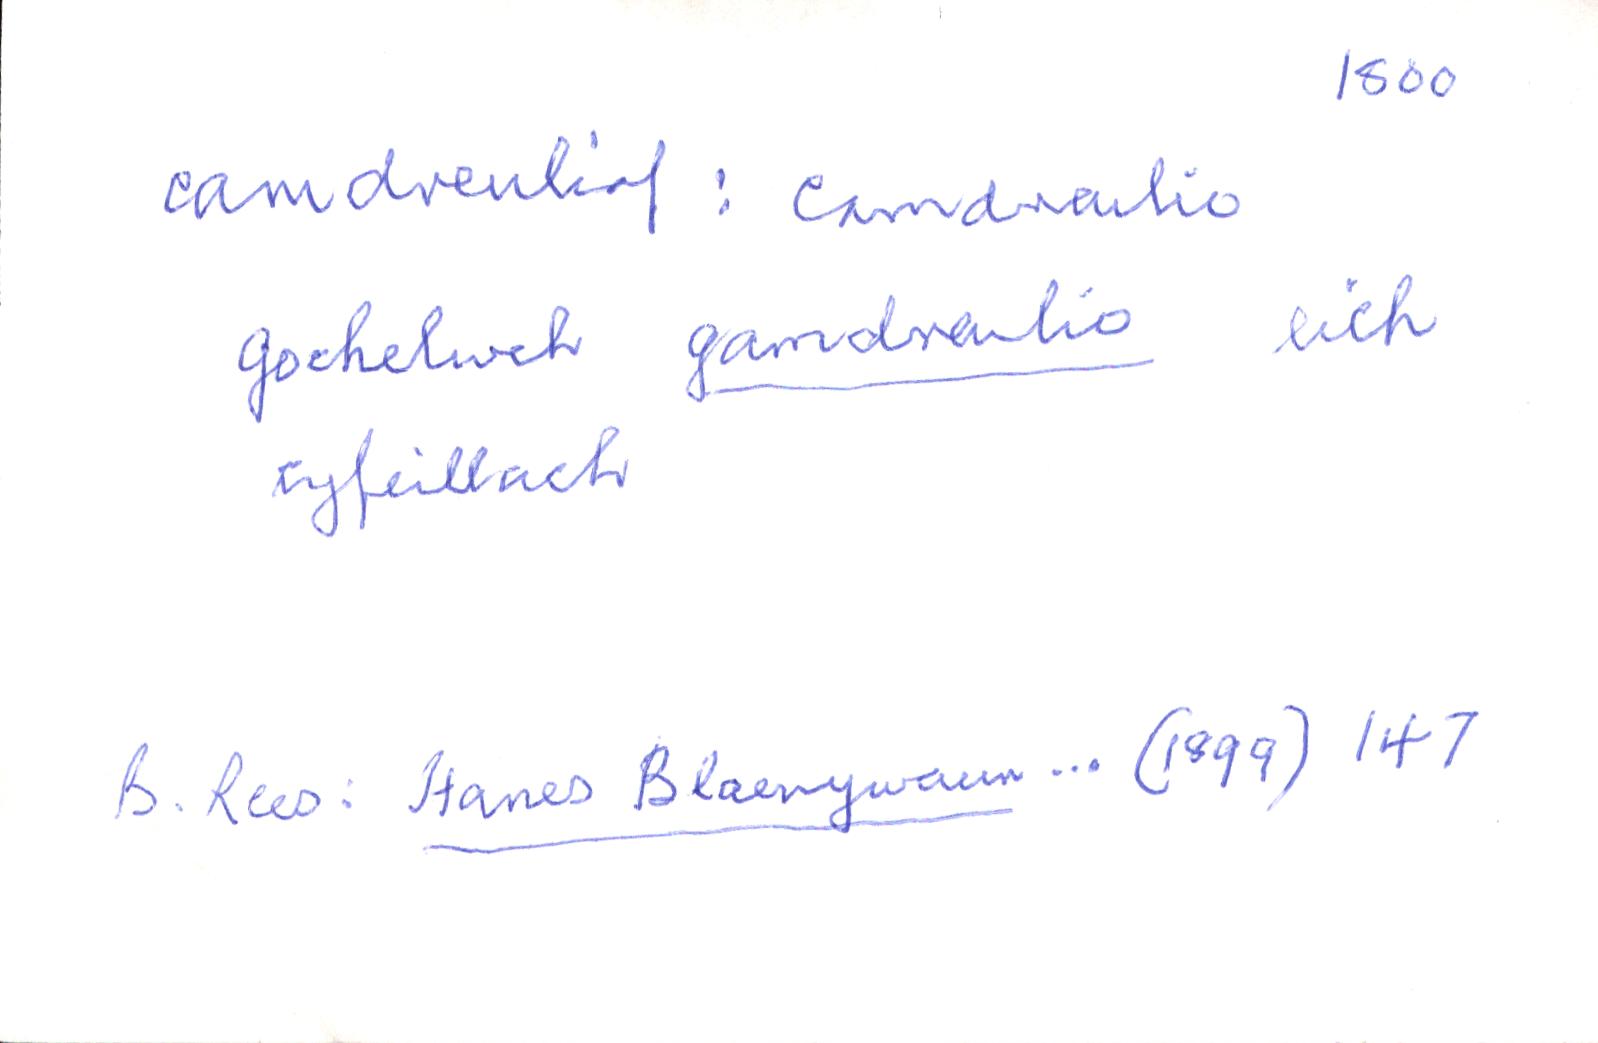 1800
camdreuliaf : camdreulio
Gochelwch gamdreulio eich
cyfeillach
B. Rees: Hanes Blaenywaun ... (1899) 147